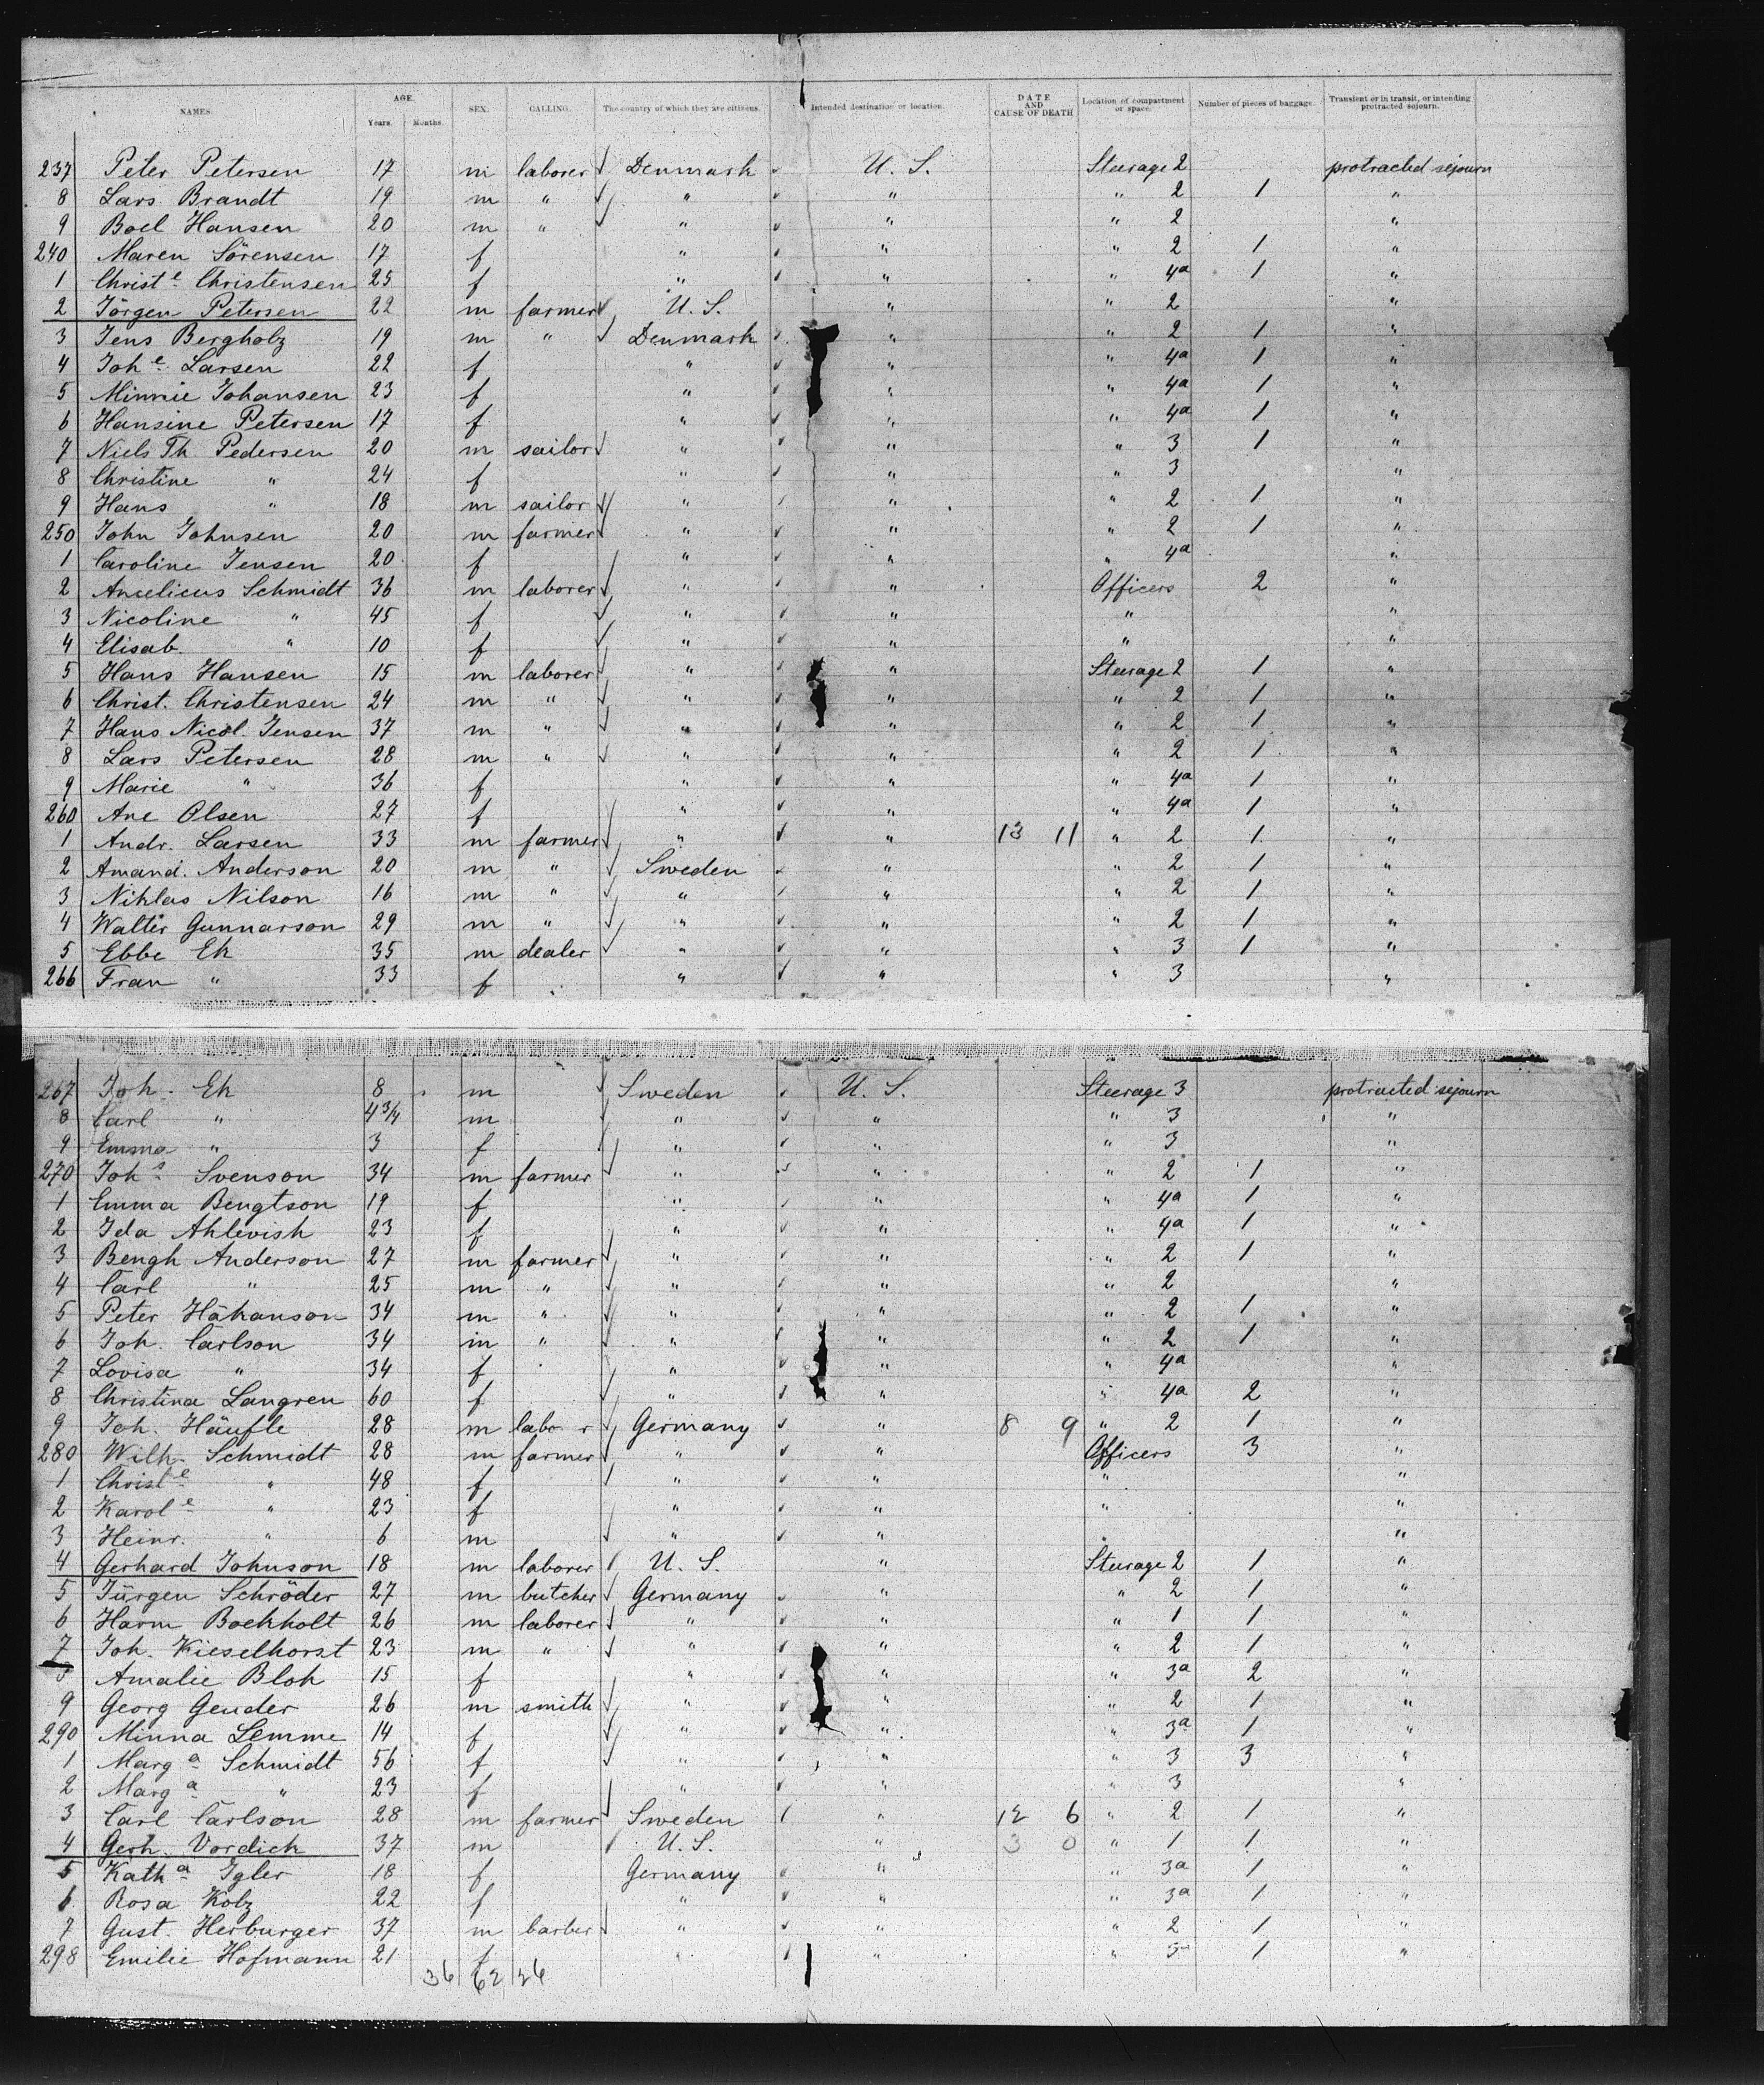 NAMES. AGE. SEX. CALLING. The country of which they are citizens. Intended destination or location. DATE AND CAUSE OF DEATH Location of compartment or space. Number of pieces of baggage. Transient or in transit, or intending protracted sojourn.
Years. Months.
237 Peter Petersen 17 m laborer Denmark U. S. Steerage 2 protracted sejourn
8 Lars Brandt 19 m " " " " 2 1 "
9 Boel Hansen 20 m " " " " 2 "
240 Maren Sörensen 17 f " " " 2 1 "
1 Christe Christensen 25 f " " " 4a 1 "
2 Jörgen Petersen 22 m farmer U. S. " " 2 "
3 Jens Bergholz 19 m " Denmark " " 2 1 "
4 Johe Larsen 22 f " " " 4a 1 "
5 Minnie Johansen 23 f " " " 4a 1 "
6 Hansine Petersen 17 f " " " 4a 1 "
7 Niels Th Pedersen 20 m sailor " " " 3 1 "
8 Christine " 24 f " " " 3 "
9 Hans " 18 m sailor " " " 2 1 "
250 John Johnsen 20 m farmer " " " 2 1 "
1 Caroline Jensen 20 f " " " 4a "
2 Ancelicus Schmidt 36 m laborer " " Officers 2 "
3 Nicoline " 45 f " " " "
4 Elisab. " 10 f " " " "
5 Hans Hansen 15 m laborer " " Steerage 2 1 "
6 Christ. Christensen 24 m " " " " 2 1 "
7 Hans Nicol. Jensen 37 m " " " " 2 1 "
8 Lars Petersen 28 m " " " " 2 1 "
9 Marie " 36 f " " " 4a 1 "
260 Ane Olsen 27 f " " " 4a 1 "
1 Andr. Larsen 33 m farmer " " 13 11 " 2 1 "
2 Amand. Anderson 20 m " Sweden " " 2 1 "
3 Nihlas Nilson 16 m " " " " 2 1 "
4 Walter Gunnarson 29 m " " " " 2 1 "
5 Ebbe Ek 35 m dealer " " " 3 1 "
266 Fran " 33 f " " " 3 "
267 Joh. Ek 8 m Sweden U. S. Steerage 3 protracted sejourn
8 Carl " 4 3/4 m " " " 3 "
9 Emma " 3 f " " " 3 "
270 Johs Svenson 34 m farmer " " " 2 1 "
1 Emma Bengtson 19 f " " " 4a 1 "
2 Ida Ahlevish 23 f " " " 4a 1 "
3 Bengh Anderson 27 m farmer " " " 2 1 "
4 Carl " 25 m " " " " 2 "
5 Peter Håkanson 34 m " " " " 2 1 "
6 Joh. Carlson 34 m " " " " 2 1 "
7 Lovisa " 34 f " " " 4a "
8 Christina Langren 60 f " " " 4a 2 "
9 Joh. Häufle 28 m labo r Germany " 8 9 " 2 1 "
280 Wilh. Schmidt 28 m farmer " " Officers 3 "
1 Christe " 48 f " " " "
2 Karole " 23 f " " " "
3 Heinr. " 6 m " " " "
4 Gerhard Johnson 18 m laborer U. S. " Steerage 2 1 "
5 Jürgen Schröder 27 m butcher Germany " " 2 1 "
6 Harm Bockholt 26 m laborer " " " 1 1 "
7 Joh. Kieselhorst 23 m " " " " 2 1 "
8 Amalie Bloh 15 f " " " 3a 2 "
9 Georg Geuder 26 m smith " " " 2 1 "
290 Minna Lemme 14 f " " " 3a 1 "
1 Marga Schmidt 56 f " " " 3 3 "
2 Marga " 23 f " " " 3 "
3 Carl Carlson 28 m farmer Sweden " 12 6 " 2 1 "
4 Gerh. Vordick 37 m U. S. " 3 0 " 1 1 "
5 Katha Igler 18 f Germany " " 3a 1 "
6 Rosa Kolz 22 f " " " 3a 1 "
7 Gust. Herburger 37 m barber " " " 2 1 "
298 Emilie Hofmann 21 f " " " 3a 1 "
36 62 26